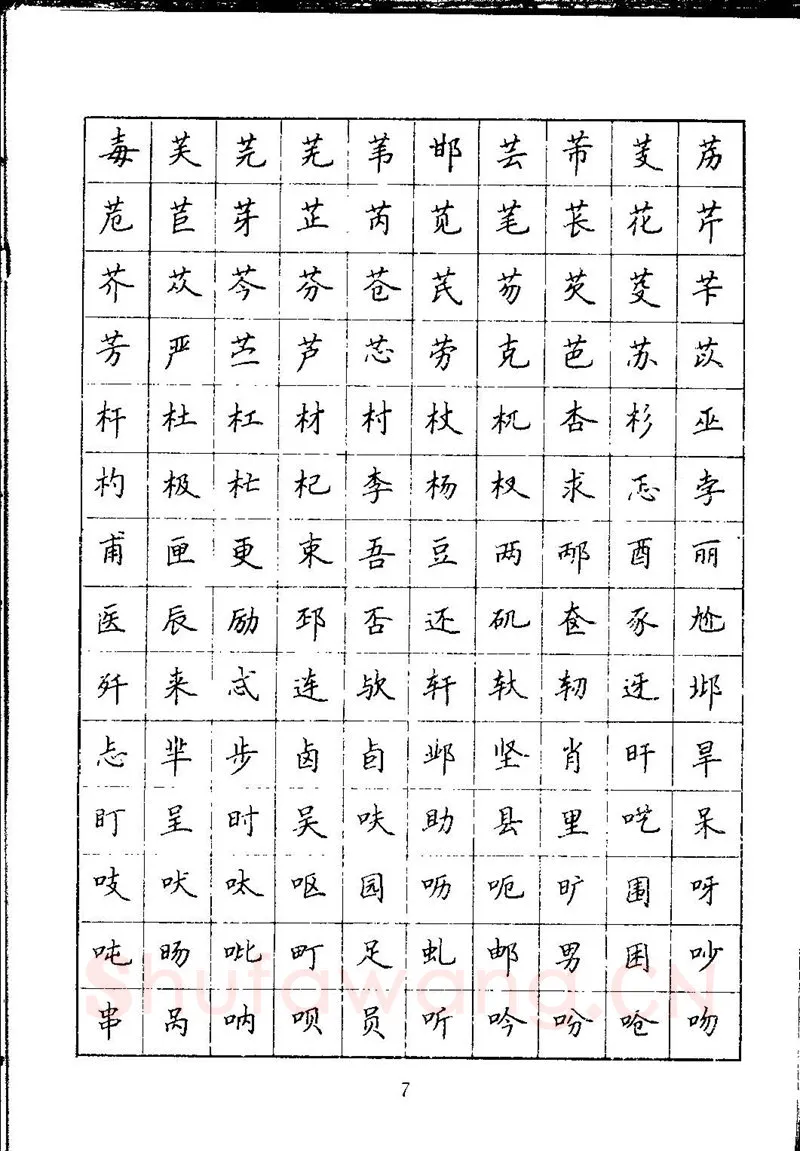 毒 芙 芫 芜 苇 邯 芸 芾 芰 苈
苊 苣 芽 芷 芮 苋 芼 苌 花 芹
芥 苁 芩 芬 苍 芪 芴 芡 芟 苄
芳 严 苎 芦 芯 劳 克 芭 苏 苡
杆 杜 杠 材 村 杖 杌 杏 杉 巫
杓 极 杧 杞 李 杨 杈 求 忑 孛
甫 匣 更 束 吾 豆 两 邴 酉 丽
医 辰 励 邳 否 还 矶 奁 豕 尬
歼 来 忒 连 欤 轩 轪 轫 迓 邶
忐 芈 步 卤 卣 邺 坚 肖 旰 旱
盯 呈 时 吴 呋 助 县 里 呓 呆
吱 吠 呔 呕 园 呖 呃 旷 围 呀
吨 旸 吡 町 足 虬 邮 男 困 吵
Shufawang.CN
串 呙 呐 呗 员 听 吟 吩 呛 吻
7